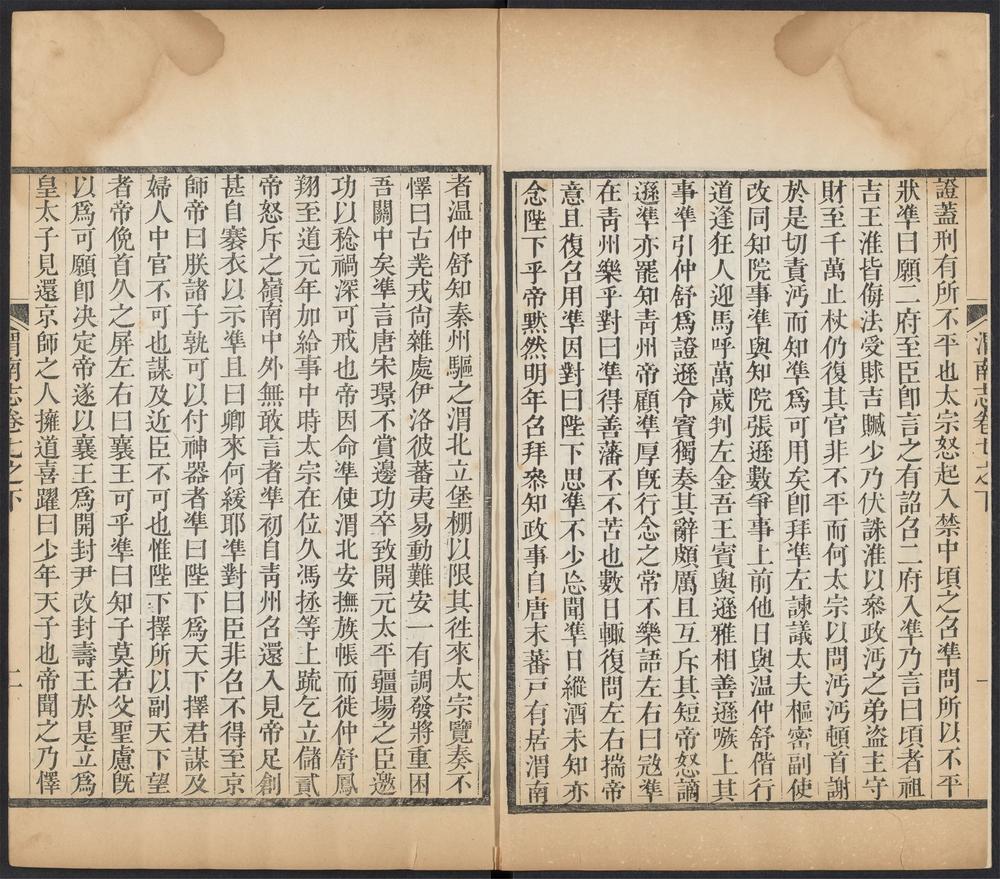 渭南志卷七之下
一
證蓋刑有所不平也太宗怒起入禁中頃之召準問所以不平
狀準曰願二府至臣卽言之有詔召二府入準乃言曰頃者祖
吉王淮皆侮法受賕吉贓少乃伏誅淮以叅政沔之弟盜主守
財至千萬止杖仍復其官非不平而何太宗以問沔沔頓首謝
於是切責沔而知準爲可用矣卽拜準左諫議太夫樞密副使
改同知院事準與知院張遜數爭事上前他日與温仲舒偕行
道逢狂人迎馬呼萬歲判左金吾王賓與遜雅相善遜嗾上其
事準引仲舒爲證遜令賓獨奏其辭頗厲且互斥其短帝怒謫
遜準亦罷知靑州帝顧準厚旣行念之常不樂語左右曰宼準
在靑州樂乎對曰準得善藩不不苦也數日輙復問左右揣帝
意且復召用準因對曰陛下思準不少忘聞準日縱酒未知亦
念陛下乎帝默然明年召拜叅知政事自唐末蕃戸有居渭南
者温仲舒知秦州驅之渭北立堡棚以限其徃來太宗覽奏不
懌曰古羌戎尙雜處伊洛彼蕃夷易動難安一有調發將重困
吾關中矣準言唐宋璟不賞邊功卒致開元太平疆場之臣邀
功以稔禍深可戒也帝因命準使渭北安撫族帳而徙仲舒鳳
翔至道元年加給事中時太宗在位久馮拯等上疏乞立儲貳
帝怒斥之嶺南中外無敢言者準初自靑州召還入見帝足創
甚自褰衣以示準且曰卿來何緩耶準對曰臣非召不得至京
師帝曰朕諸子孰可以付神器者準曰陛下爲天下擇君謀及
婦人中官不可也謀及近臣不可也惟陛下擇所以副天下望
者帝俛首久之屏左右曰襄王可乎準曰知子莫若父聖慮旣
以爲可願卽决定帝遂以襄王爲開封尹改封壽王於是立爲
皇太子見還京師之人擁道喜躍曰少年天子也帝聞之乃懌
渭南志卷七之下
二